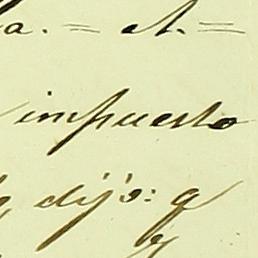 a. = A. =
impuesto
dijo: q